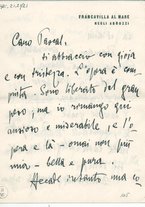 FRANCAVILLA AL MARE
NEGLI ABRUZZI
Caro Pascal,
ti abbraccio con gioja
e con tristezza. L'opera è com-
pita. Sono liberato del gran
peso, ma io rimango qui
ansioso e miserabile; e l'o-
pera è là, e non più
mia - bella e pura.
Accade intanto ma io